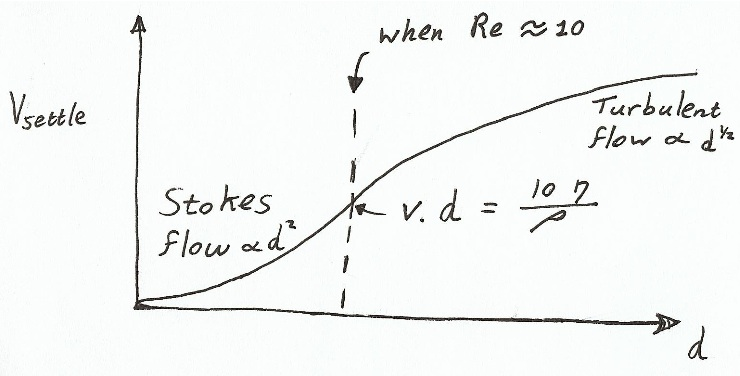 when Re ≈ 10
Vsettle
Turbulent
flow ∝ d^1/2
Stokes
flow ∝ d²
v. d = 10 η / ρ
d